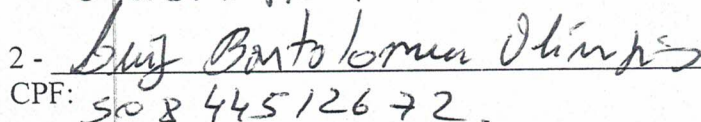 2 - Luiz Bartolomeu Olímpio
CPF: 508 445126 72.